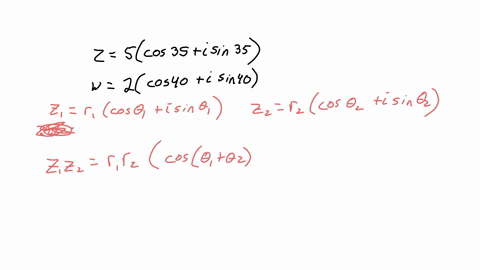 z = 5(cos35 + i sin 35)
w = 2(cos40 + i sin40)
z₁ = r₁(cosθ₁ + i sin θ₁) z₂ = r₂(cos θ₂ + i sin θ₂)
z₁z₂ = r₁r₂ (cos(θ₁+θ2)